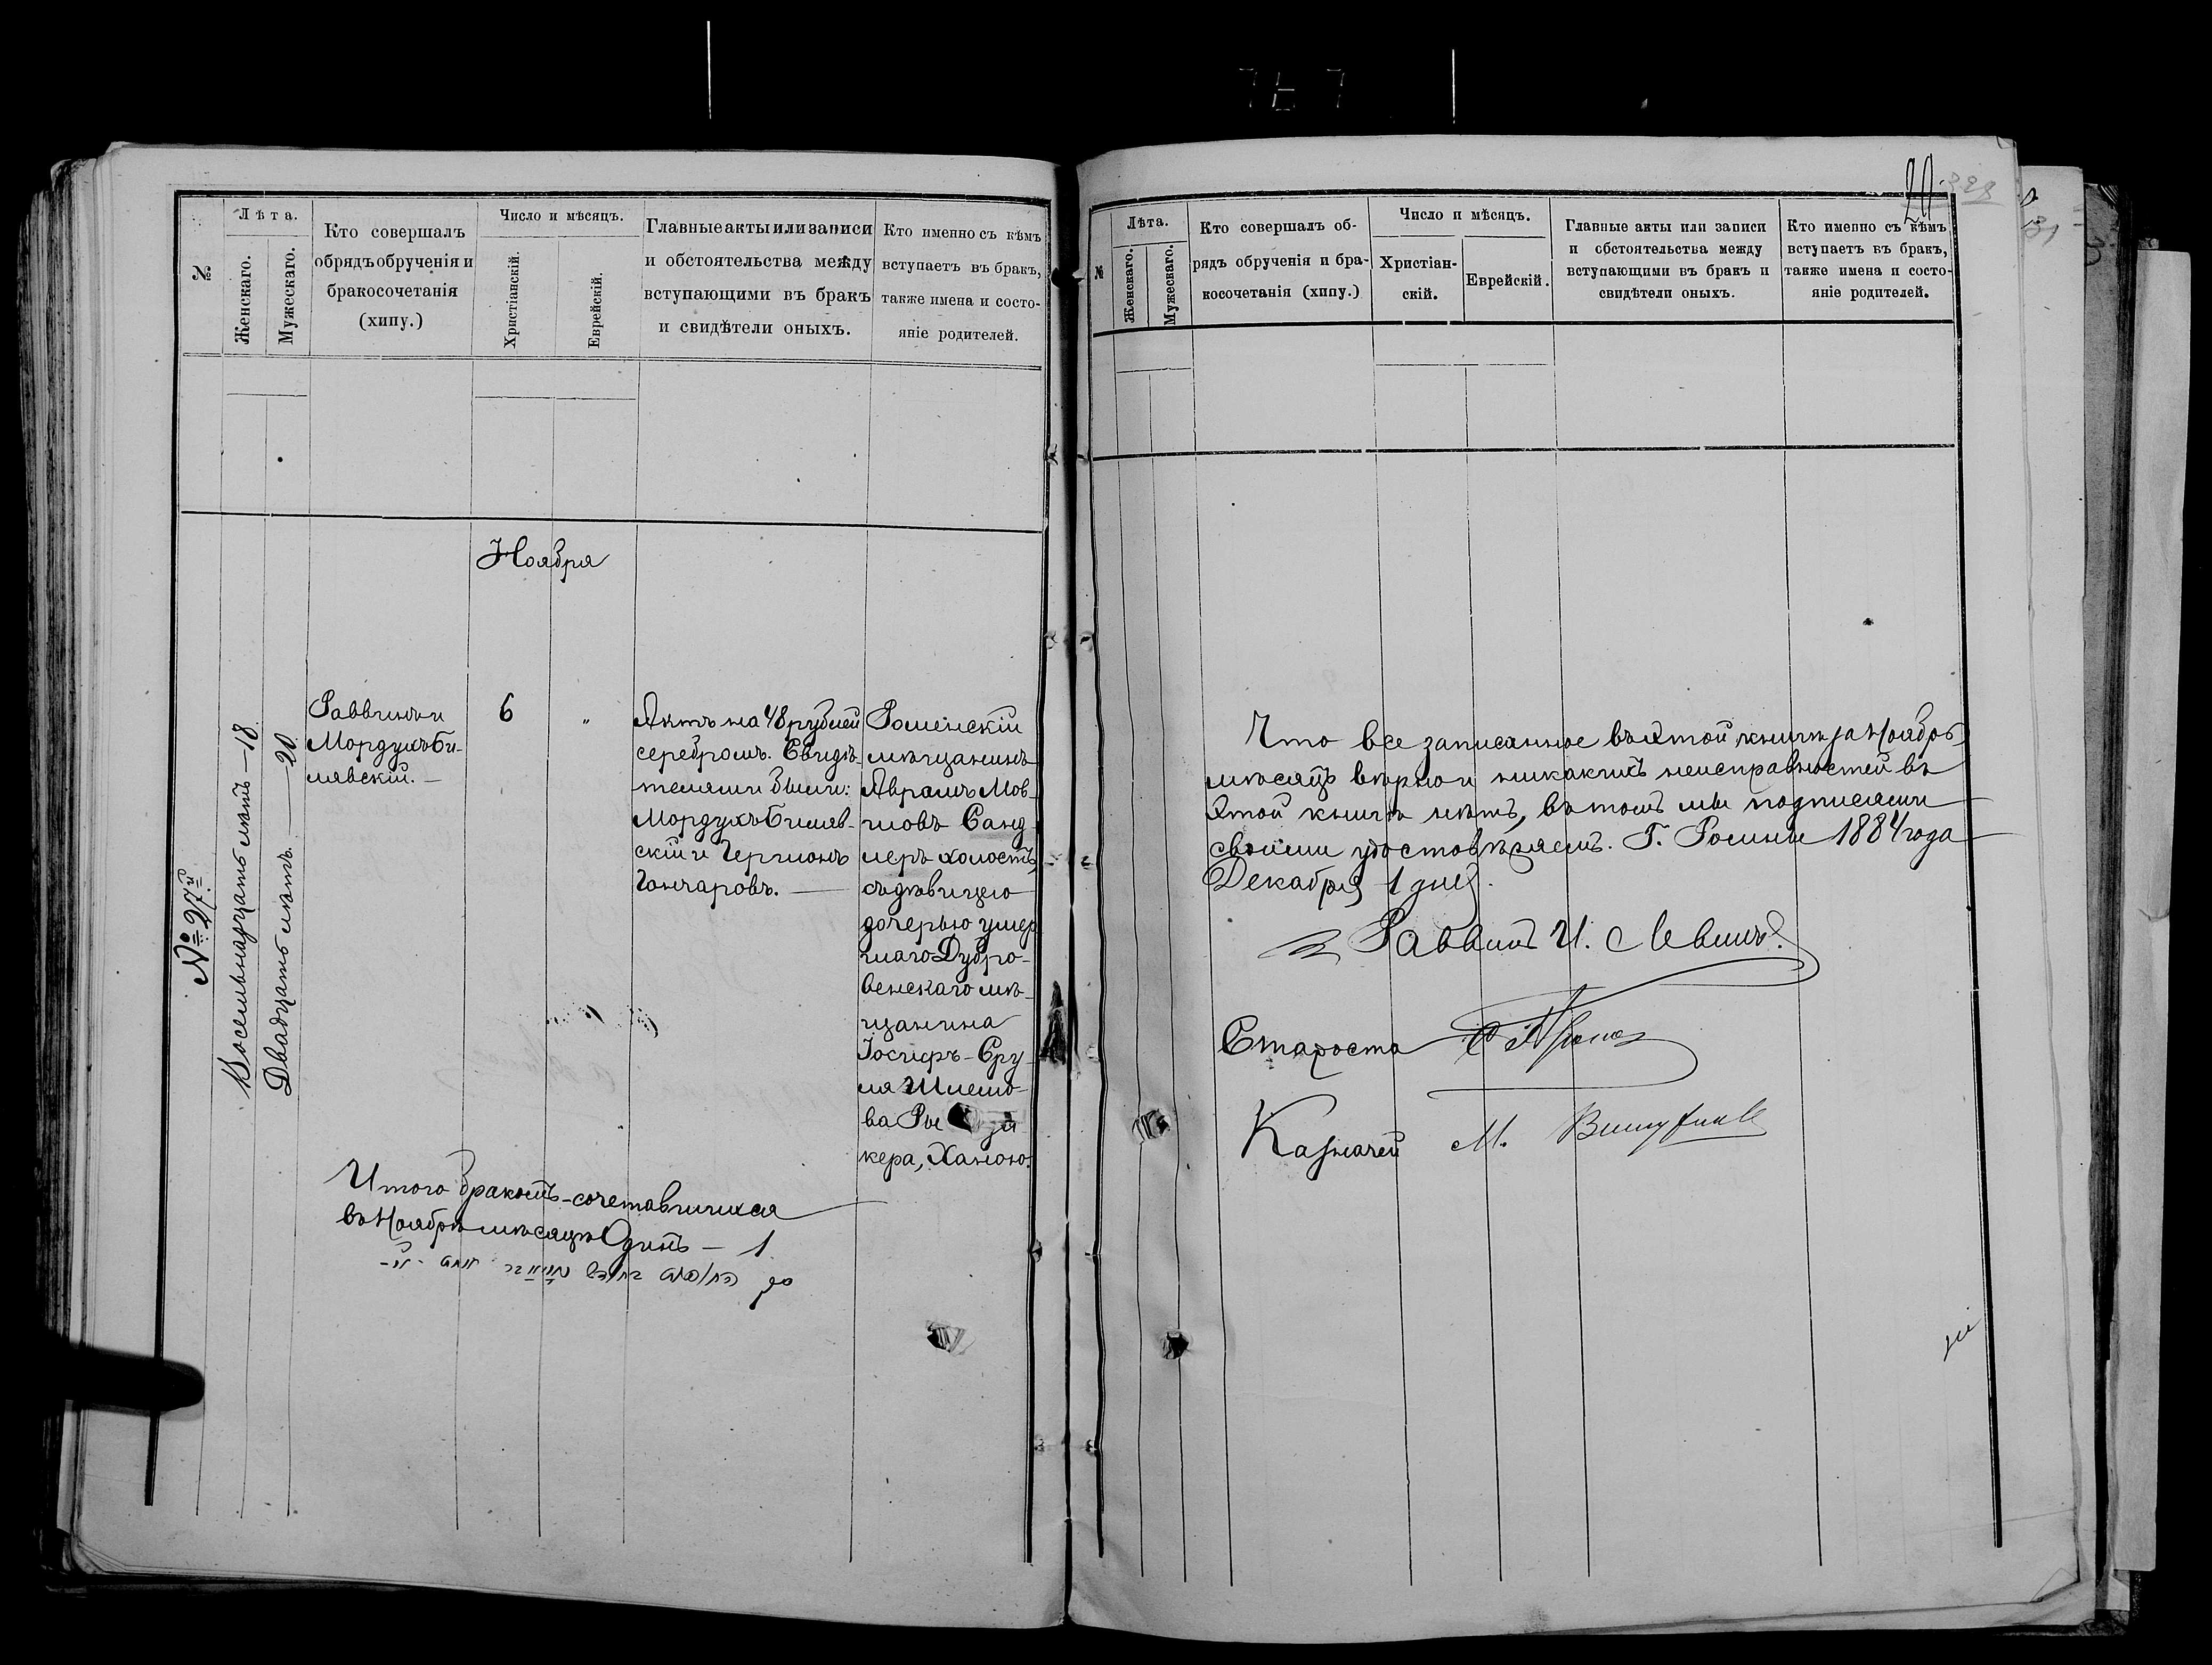 №
Лѣта.
Женскаго.
Мужескаго.
Кто совершалъ
обрядъ обрученія и
бракосочетанія
(хипу.)
Число и мѣсяцъ.
Христіанскій.
Еврейскій.
Главные акты или записи
и обстоятельства между
вступающими въ бракъ
и свидѣтели оныхъ.
Кто именно съ кѣмъ
вступаетъ въ бракъ,
также имена и состо-
яніе родителей.
Ноября
№ 27й
Восемьнадцать лѣтъ — 18
Двадцать лѣтъ. — 20
Раввинъ и
Мордухъ Би-
лявскій. —
6
"
Актъ на 48 рублей
серебромъ. Свидѣ-
телями были:
Мордухъ Биляв-
скій и Герціонъ
Гончаровъ. —
Роменскій
мѣщанинъ
Аврамъ Мов-
шовъ Санд-
леръ холостъ,
съ дѣвицею
дочерью умер-
шаго Дубро-
венскаго мѣ-
щанина
Іосифъ-Сру-
ля Шлемо-
ва Ры
кера, Ханою.
Итого бракомъ-сочетавшихся
въ Ноябрѣ мѣсяцѣ Одинъ — 1
20
328
31
№
Лѣта.
Женскаго.
Мужескаго.
Кто совершалъ об-
рядъ обрученія и бра-
косочетанія (хипу.)
Число и мѣсяцъ.
Христіан-
скій.
Еврейскій.
Главные акты или записи
и обстоятельства между
вступающими въ бракъ и
свидѣтели оныхъ.
Кто именно съ кѣмъ
вступаетъ въ бракъ,
также имена и состо-
яніе родителей.
Что все записанное въ этой книгѣ за Ноябрь
мѣсяцъ вѣрно и никакихъ неисправностей въ
этой книгѣ нѣтъ, въ томъ мы подписями
своими удостовѣряемъ. Г. Ромны 1884 года
Декабря 1 дня.
Раввинъ И. Левинъ.
Староста
Казначей М.